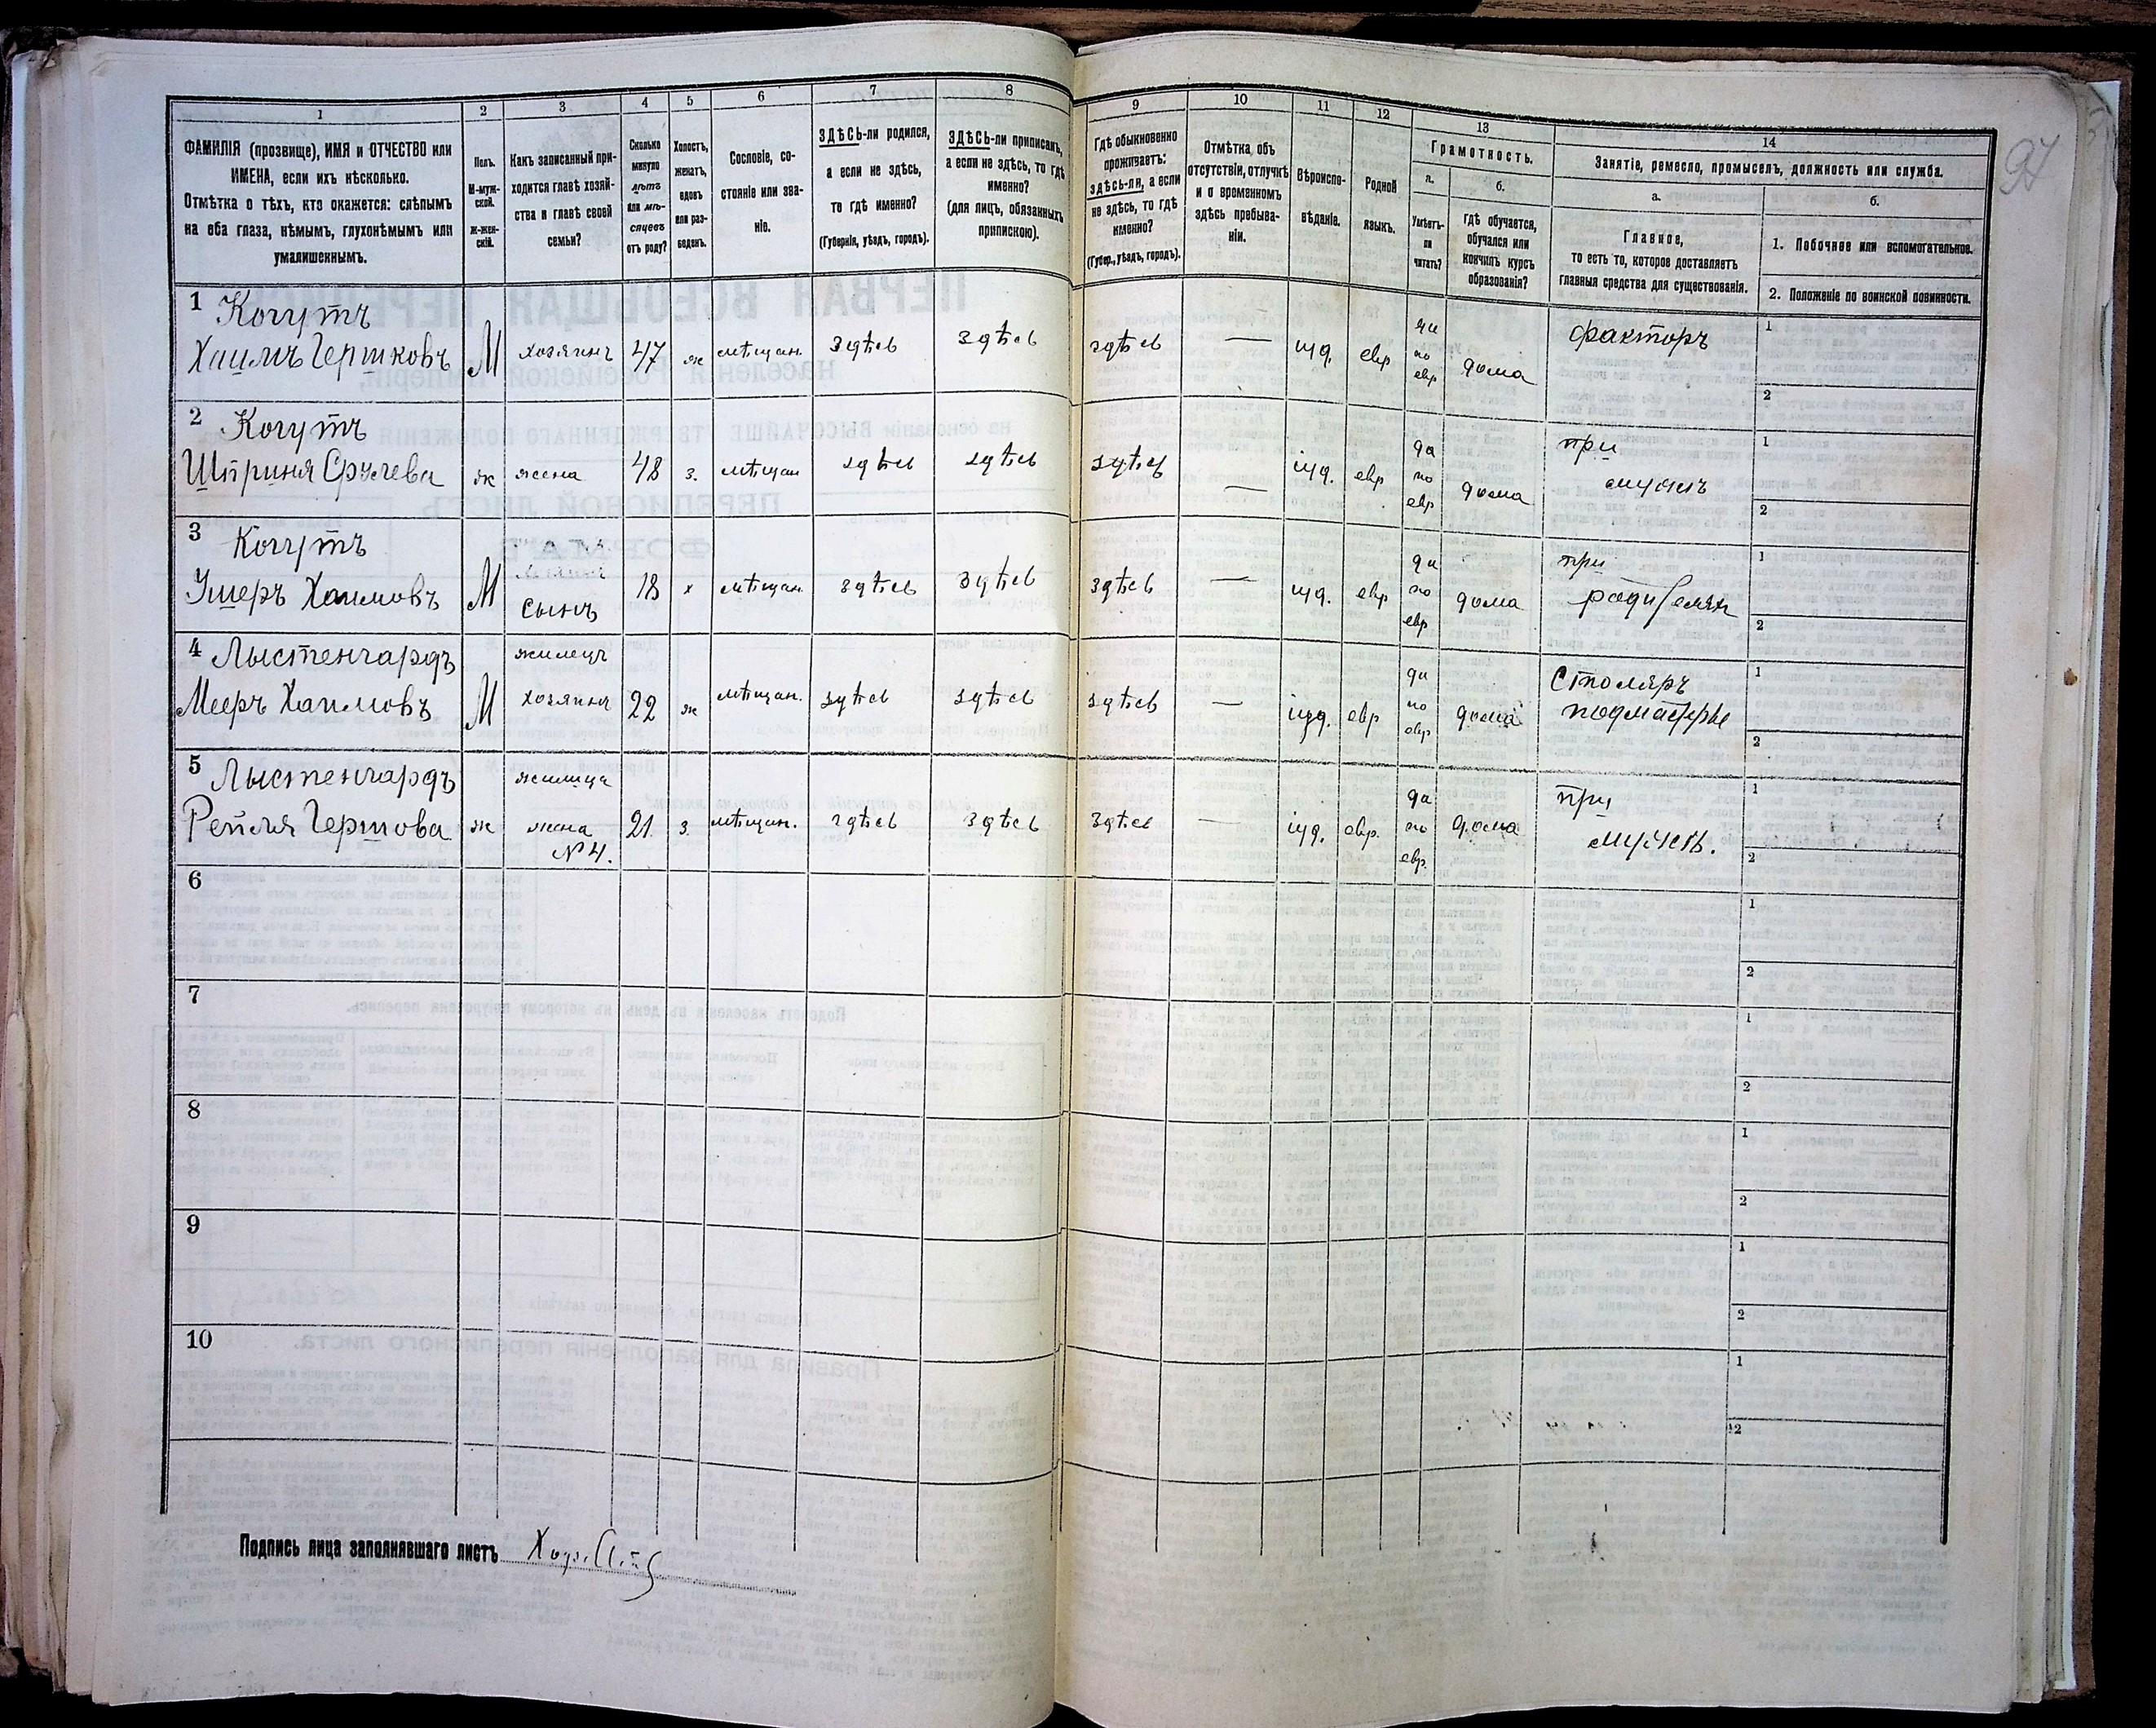 97
1 2 3 4 5 6 7 8 9 10 11 12 13 14
ФАМИЛІЯ (прозвище), ИМЯ и ОТЧЕСТВО или
ИМЕНА, если ихъ нѣсколько.
Отмѣтка о тѣхъ, кто окажется: слѣпымъ
на оба глаза, нѣмымъ, глухонѣмымъ или
умалишеннымъ.
Полъ.
М-муж-
ской.
Ж-жен-
скій.
Какъ записанный при-
ходится главѣ хозяй-
ства и главѣ своей
семьи?
Сколько
минуло
лѣтъ
или мѣ-
сяцевъ
отъ роду?
Холостъ,
женатъ,
вдовъ
или раз-
веденъ.
Сословіе, со-
стояніе или зва-
ніе.
ЗДѢСЬ-ли родился,
а если не здѣсь,
то гдѣ именно?
(Губернія, уѣздъ, городъ).
ЗДѢСЬ-ли приписанъ,
а если не здѣсь, то гдѣ
именно?
(для лицъ, обязанныхъ
припискою).
Гдѣ обыкновенно
проживаетъ:
здѣсь-ли, а если
не здѣсь, то гдѣ
именно?
(Губер., уѣздъ, городъ).
Отмѣтка, объ
отсутствіи, отлучкѣ
и о временномъ
здѣсь пребыва-
ніи.
Вѣроиспо-
вѣданіе.
Родной
языкъ.
Грамотность.
а.
Умѣетъ-
ли
читать?
б.
гдѣ обучается,
обучался или
кончилъ курсъ
образованія?
Занятіе, ремесло, промыселъ, должность или служба.
а.
Главное,
то есть то, которое доставляетъ
главныя средства для существованія.
б.
1. Побочное или вспомогательное.
2. Положеніе по воинской повинности.
1 Когутъ
Хаимъ Гершковъ М хозяинъ 47 ж мѣщан. здѣсь здѣсь здѣсь — іуд. евр да по евр дома факторъ 1 2
2 Когутъ
Шприня Срулева ж жена 48 з. мѣщан здѣсь здѣсь здѣсь — іуд. евр да по евр дома при мужѣ 1 2
3 Когутъ
Ушеръ Хаимовъ М сынъ 18 х мѣщан. здѣсь здѣсь здѣсь — іуд. евр да по евр дома при родителях 1 2
4 Лыстенгардъ
Мееръ Хаимовъ М жилецъ хозяинъ 22 ж мѣщан. здѣсь здѣсь здѣсь — іуд. евр да по евр дома Столяръ подмастерье 1 2
5 Лыстенгардъ
Рейля Гершова ж жилица жена №4. 21. з. мѣщан. здѣсь здѣсь здѣсь — іуд. евр. да по евр. дома при мужѣ. 1 2
6 1 2
7 1 2
8 1 2
9 1 2
10 1 2
Подпись лица заполнявшаго листъ